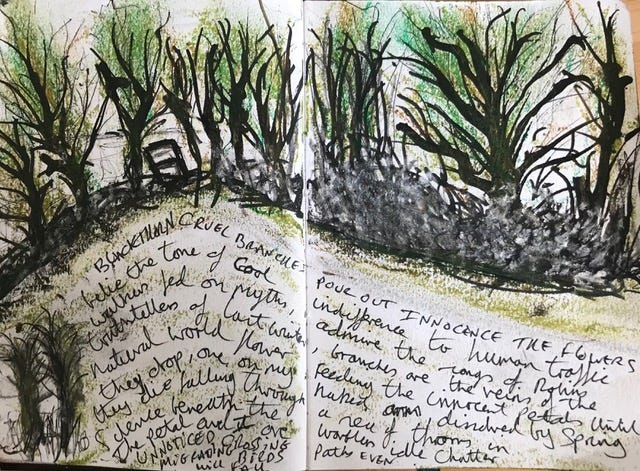 BLACKTHORN CRUEL BRANCHES
belie the tone of Cool
writers fed on myths,
truthtellers of last winter
natural world flower
they drop, one on my
they die falling through
silence beneath the
the petal and it
UNNOTICED CROSSING
MIGRATING BIRDS
will FALL
POUR OUT INNOCENCE THE FLOWERS
indifference to human traffic
admire the songs of Robins
, branches are the veins of the
Feeding the innocent Petals until
naked dissolved by Spring
a rea of thorns in
warblers idle Chatter
Paths EVEN